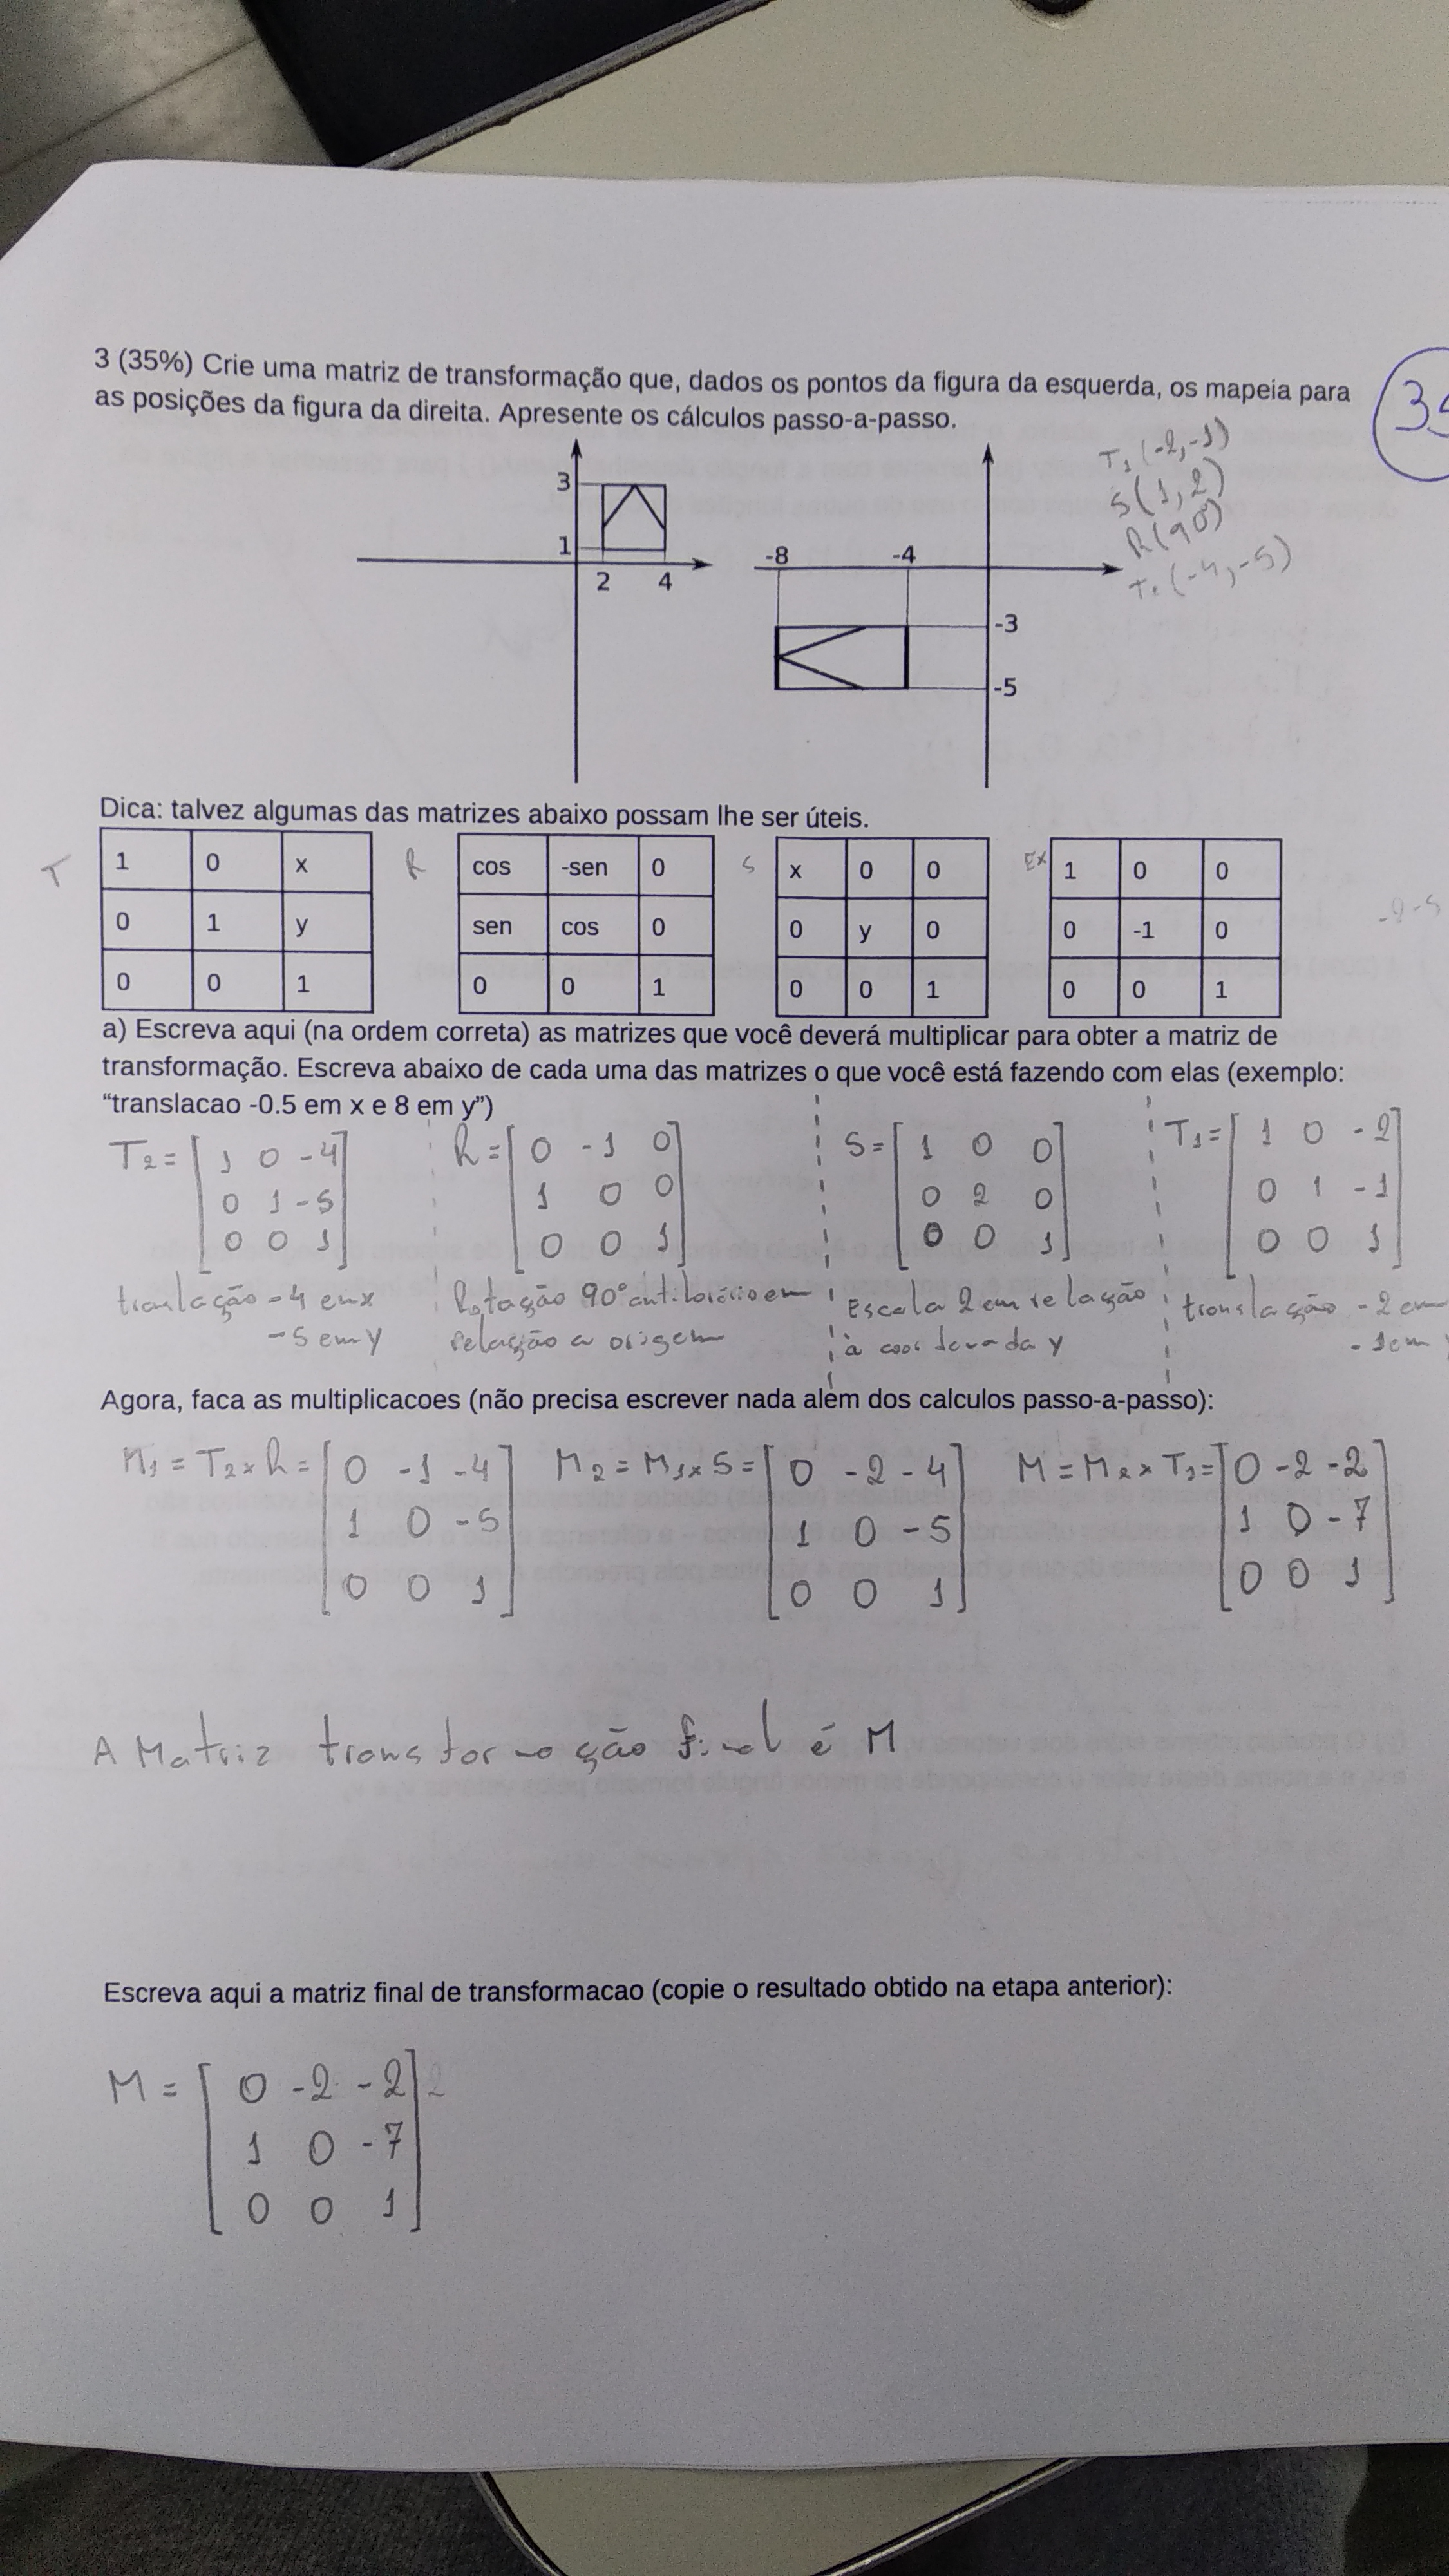 3 (35%) Crie uma matriz de transformação que, dados os pontos da figura da esquerda, os mapeia para
as posições da figura da direita. Apresente os cálculos passo-a-passo.
T1 (-2,-1)
S(1,2)
R(90°)
T2 (-4,-5)
3
1
2 4
-8 -4
-3
-5
Dica: talvez algumas das matrizes abaixo possam lhe ser úteis.
T 1 0 x R cos -sen 0 S x 0 0 EX 1 0 0
0 1 y sen cos 0 0 y 0 0 -1 0
0 0 1 0 0 1 0 0 1 0 0 1
a) Escreva aqui (na ordem correta) as matrizes que você deverá multiplicar para obter a matriz de
transformação. Escreva abaixo de cada uma das matrizes o que você está fazendo com elas (exemplo:
“translacao -0.5 em x e 8 em y”)
T2 = [ 1 0 -4 ] R = [ 0 -1 0 ] S = [ 1 0 0 ] T1 = [ 1 0 -2 ]
0 1 -5 1 0 0 0 2 0 0 1 -1
0 0 1 0 0 1 0 0 1 0 0 1
translação -4 em x Rotação 90° antihorário em Escala 2 em relação translação -2 em
-5 em y relação a origem à coordenada y -1 em
Agora, faca as multiplicacoes (não precisa escrever nada além dos calculos passo-a-passo):
M1 = T2 x R = [ 0 -1 -4 ] M2 = M1 x S = [ 0 -2 -4 ] M = M2 x T1 = [ 0 -2 -2 ]
1 0 -5 1 0 -5 1 0 -7
0 0 1 0 0 1 0 0 1
A Matriz transformação final é M
Escreva aqui a matriz final de transformacao (copie o resultado obtido na etapa anterior):
M = [ 0 -2 -2 ]
1 0 -7
0 0 1